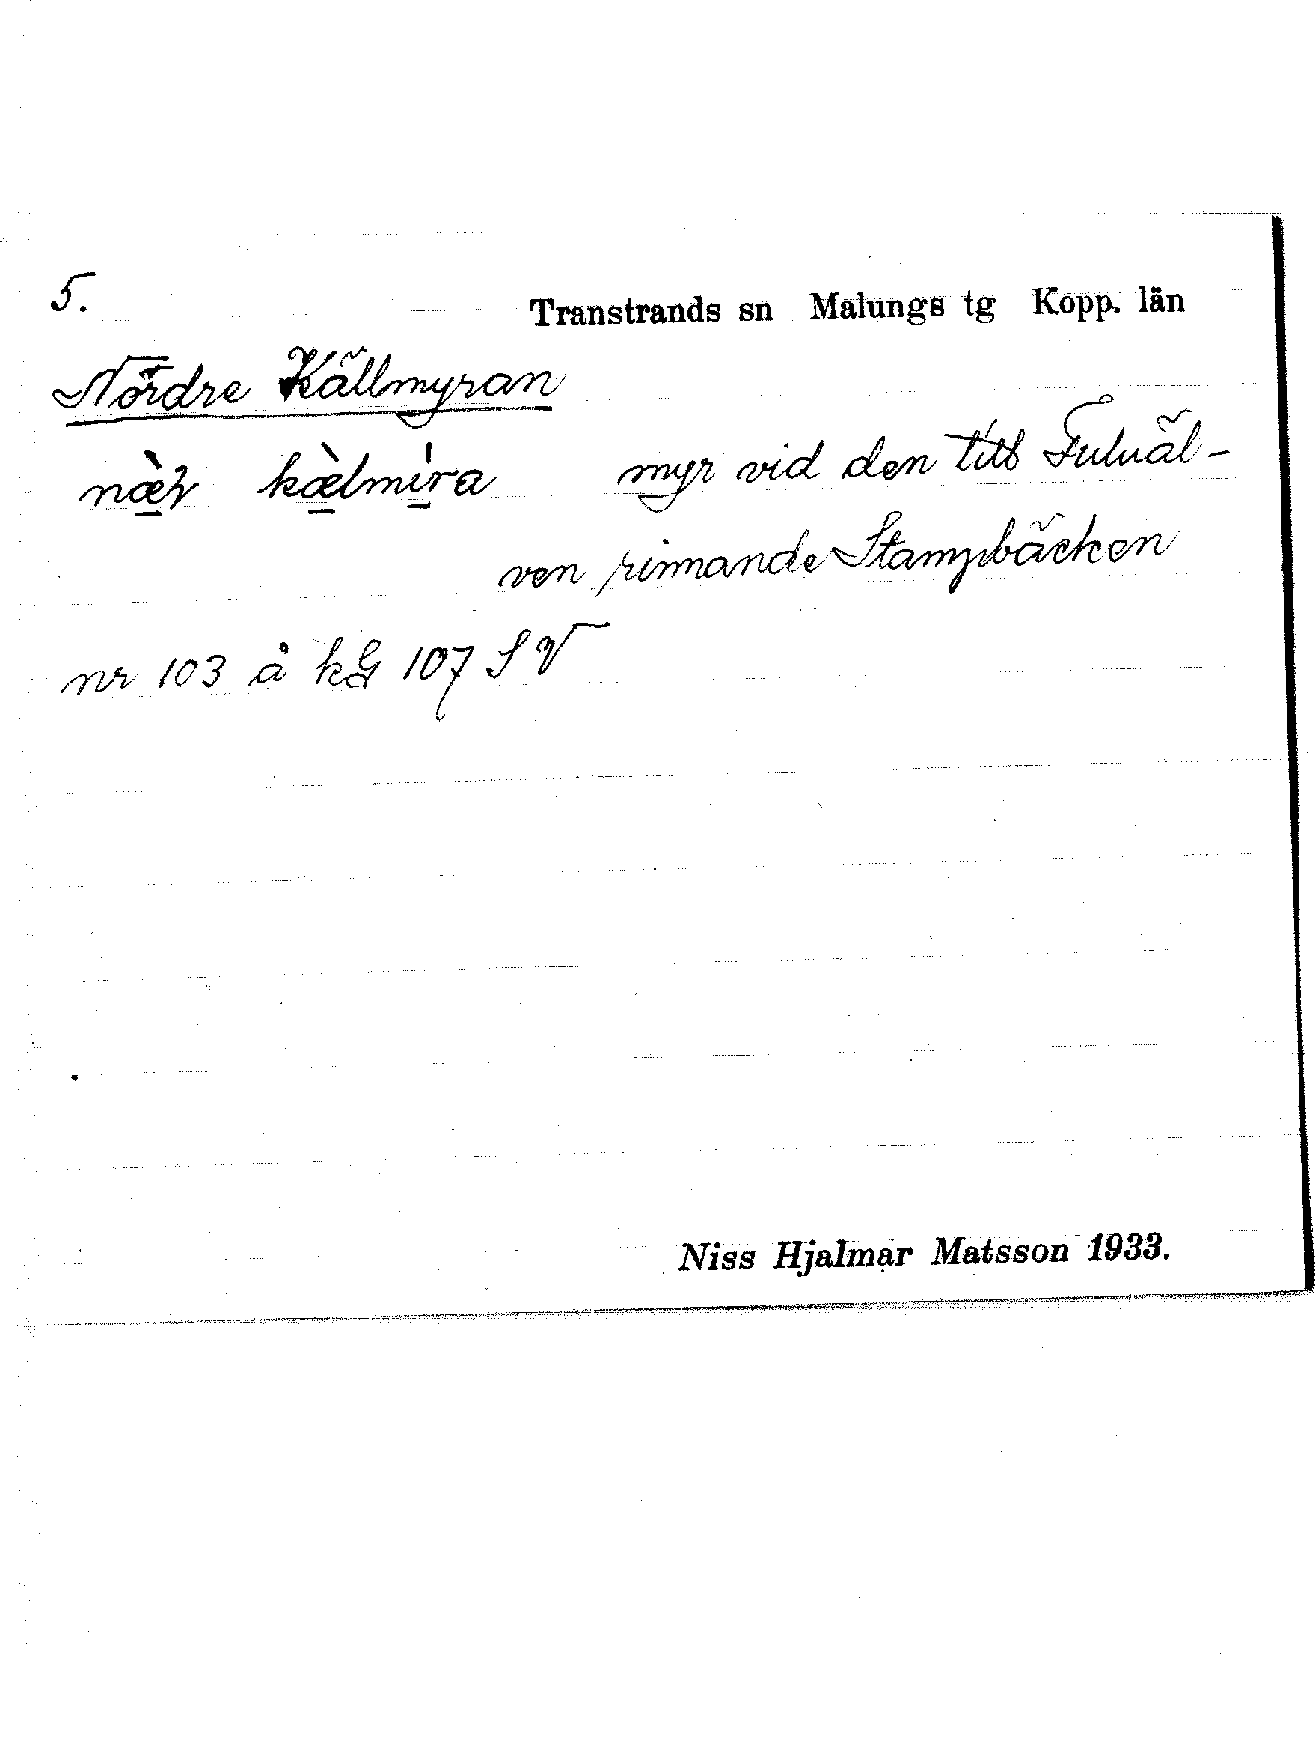 5.
Transtrands sn Malungs tg Kopp. län
Nördre Källmyran
nær kælmira myr vid den till Fuluäl-
ven rinnande Stampbäcken
nr 103 å kbl 107 SV
Niss Hjalmar Matsson 1933.